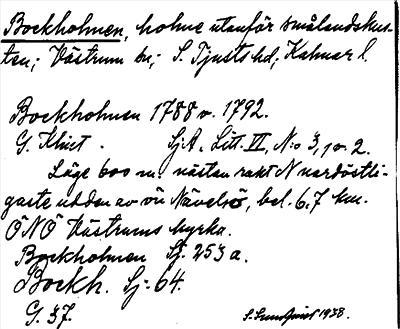 Bockholmen, holme utanför smålandskus-
ten; Västrum sn; S. Tjusts hd; Kalmar l.
Bockholmen 1788 o. 1792.
G. Klint. SjA. Litt. VI, N:o 3, 1 o. 2.
Läge 600 m. nästan rakt N nordöstli-
gaste udden av ön Nävelsö, bel. 6.7 km.
ÖNÖ Västrums kyrka.
Bockholmen Sj. 253 a.
Bockh. Sj. 64.
G. 37. S. Sundquist 1938.